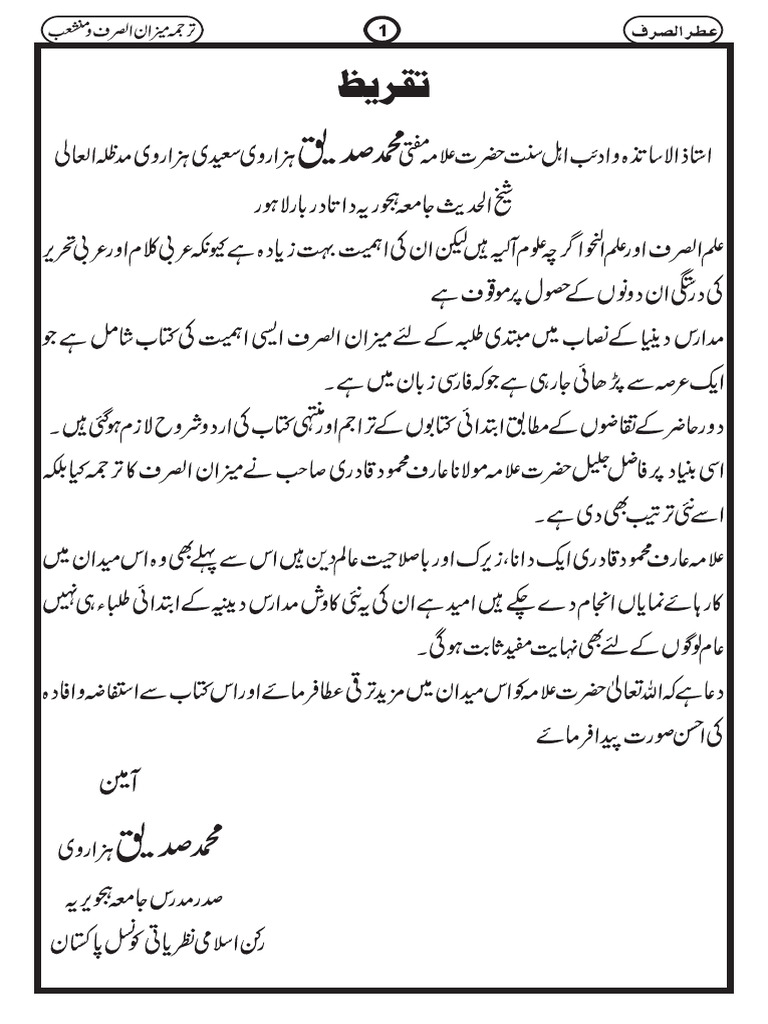 عطر الصرف
1
ترجمہ میزان الصرف و منشعب
تقریظ
استاذ الاساتذہ وادئب اہل سنت حضرت علامہ مفتی محمد صدیق ہزاروی سعیدی ہزاروی مدظلہ العالی
شیخ الحدیث جامعہ ہجوریہ داتا دربار لاہور
علم الصرف اور علم النحو اگرچہ علوم آلیہ ہیں لیکن ان کی اہمیت بہت زیادہ ہے کیونکہ عربی کلام اور عربی تحریر
کی درستگی ان دونوں کے حصول پر موقوف ہے
مدارس دینیا کے نصاب میں مبتدی طلبہ کے لئے میزان الصرف ایسی اہمیت کی کتاب شامل ہے جو
ایک عرصہ سے پڑھائی جارہی ہے جوکہ فارسی زبان میں ہے۔
دور حاضر کے تقاضوں کے مطابق ابتدائی کتابوں کے تراجم اور منتہی کتاب کی اردو شروح لازم ہوگئی ہیں۔
اسی بنیاد پر فاضل جلیل حضرت علامہ مولانا عارف محمود قادری صاحب نے میزان الصرف کا ترجمہ کیا بلکہ
اسے نئی ترتیب بھی دی ہے۔
علامہ عارف محمود قادری ایک دانا، زیرک اور باصلاحیت عالم دین ہیں اس سے پہلے بھی وہ اس میدان میں
کارہائے نمایاں انجام دے چکے ہیں امید ہے ان کی یہ نئی کاوش مدارس دینیہ کے ابتدائی طلباء ہی نہیں
عام لوگوں کے لئے بھی نہایت مفید ثابت ہوگی۔
دعا ہے کہ اللہ تعالیٰ حضرت علامہ کو اس میدان میں مزید ترقی عطا فرمائے اور اس کتاب سے استفاضہ و افادہ
کی احسن صورت پیدا فرمائے
آمین
محمد صدیق ہزاروی
صدر مدرس جامعہ ہجویریہ
رکن اسلامی نظریاتی کونسل پاکستان